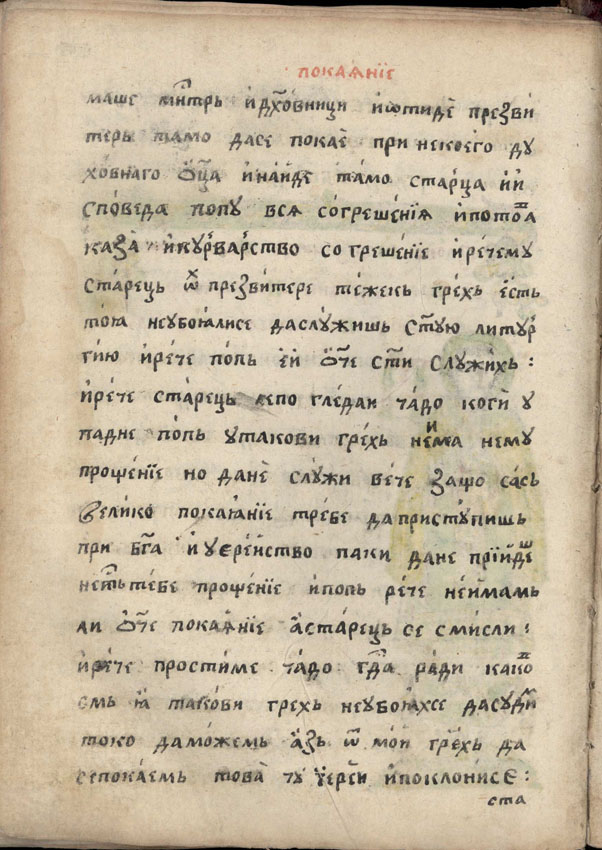 ПОКАѦНЇЕ
маше митрь и дховници иѿтиде презви
терь тамо дасе покае при некоего ду
ховнаго оца инаиде тамо старца ии
споведа попу вся согрешенїя ипотоа
каза икурварство согрешенїе иречему
старець ѿ презвитере тежекь грехь есть
тоꙗ неубоꙗлисе даслужишь стую литур
гию ирече попь еи оче сти служихь :
ирече старець лепо гледаи чадо коги у
падне попь у такови грехь неима нему
прощенїе но дане служи вече защо сась
велико покаꙗнїе требе да приступишь
при бга иуерейство паки дане прїиде
несть тебе прощенїе ипопь рече неимамь
ли оче покаѧнїе а старець се смисли :
ирече простиме чадо гда ради како
смь ꙗ такови грехь неубоꙗхсе дасуди
токо даможемь азь ѿ мои грехь да
сепокаемь това ту уереи ипоклонисе :
ста